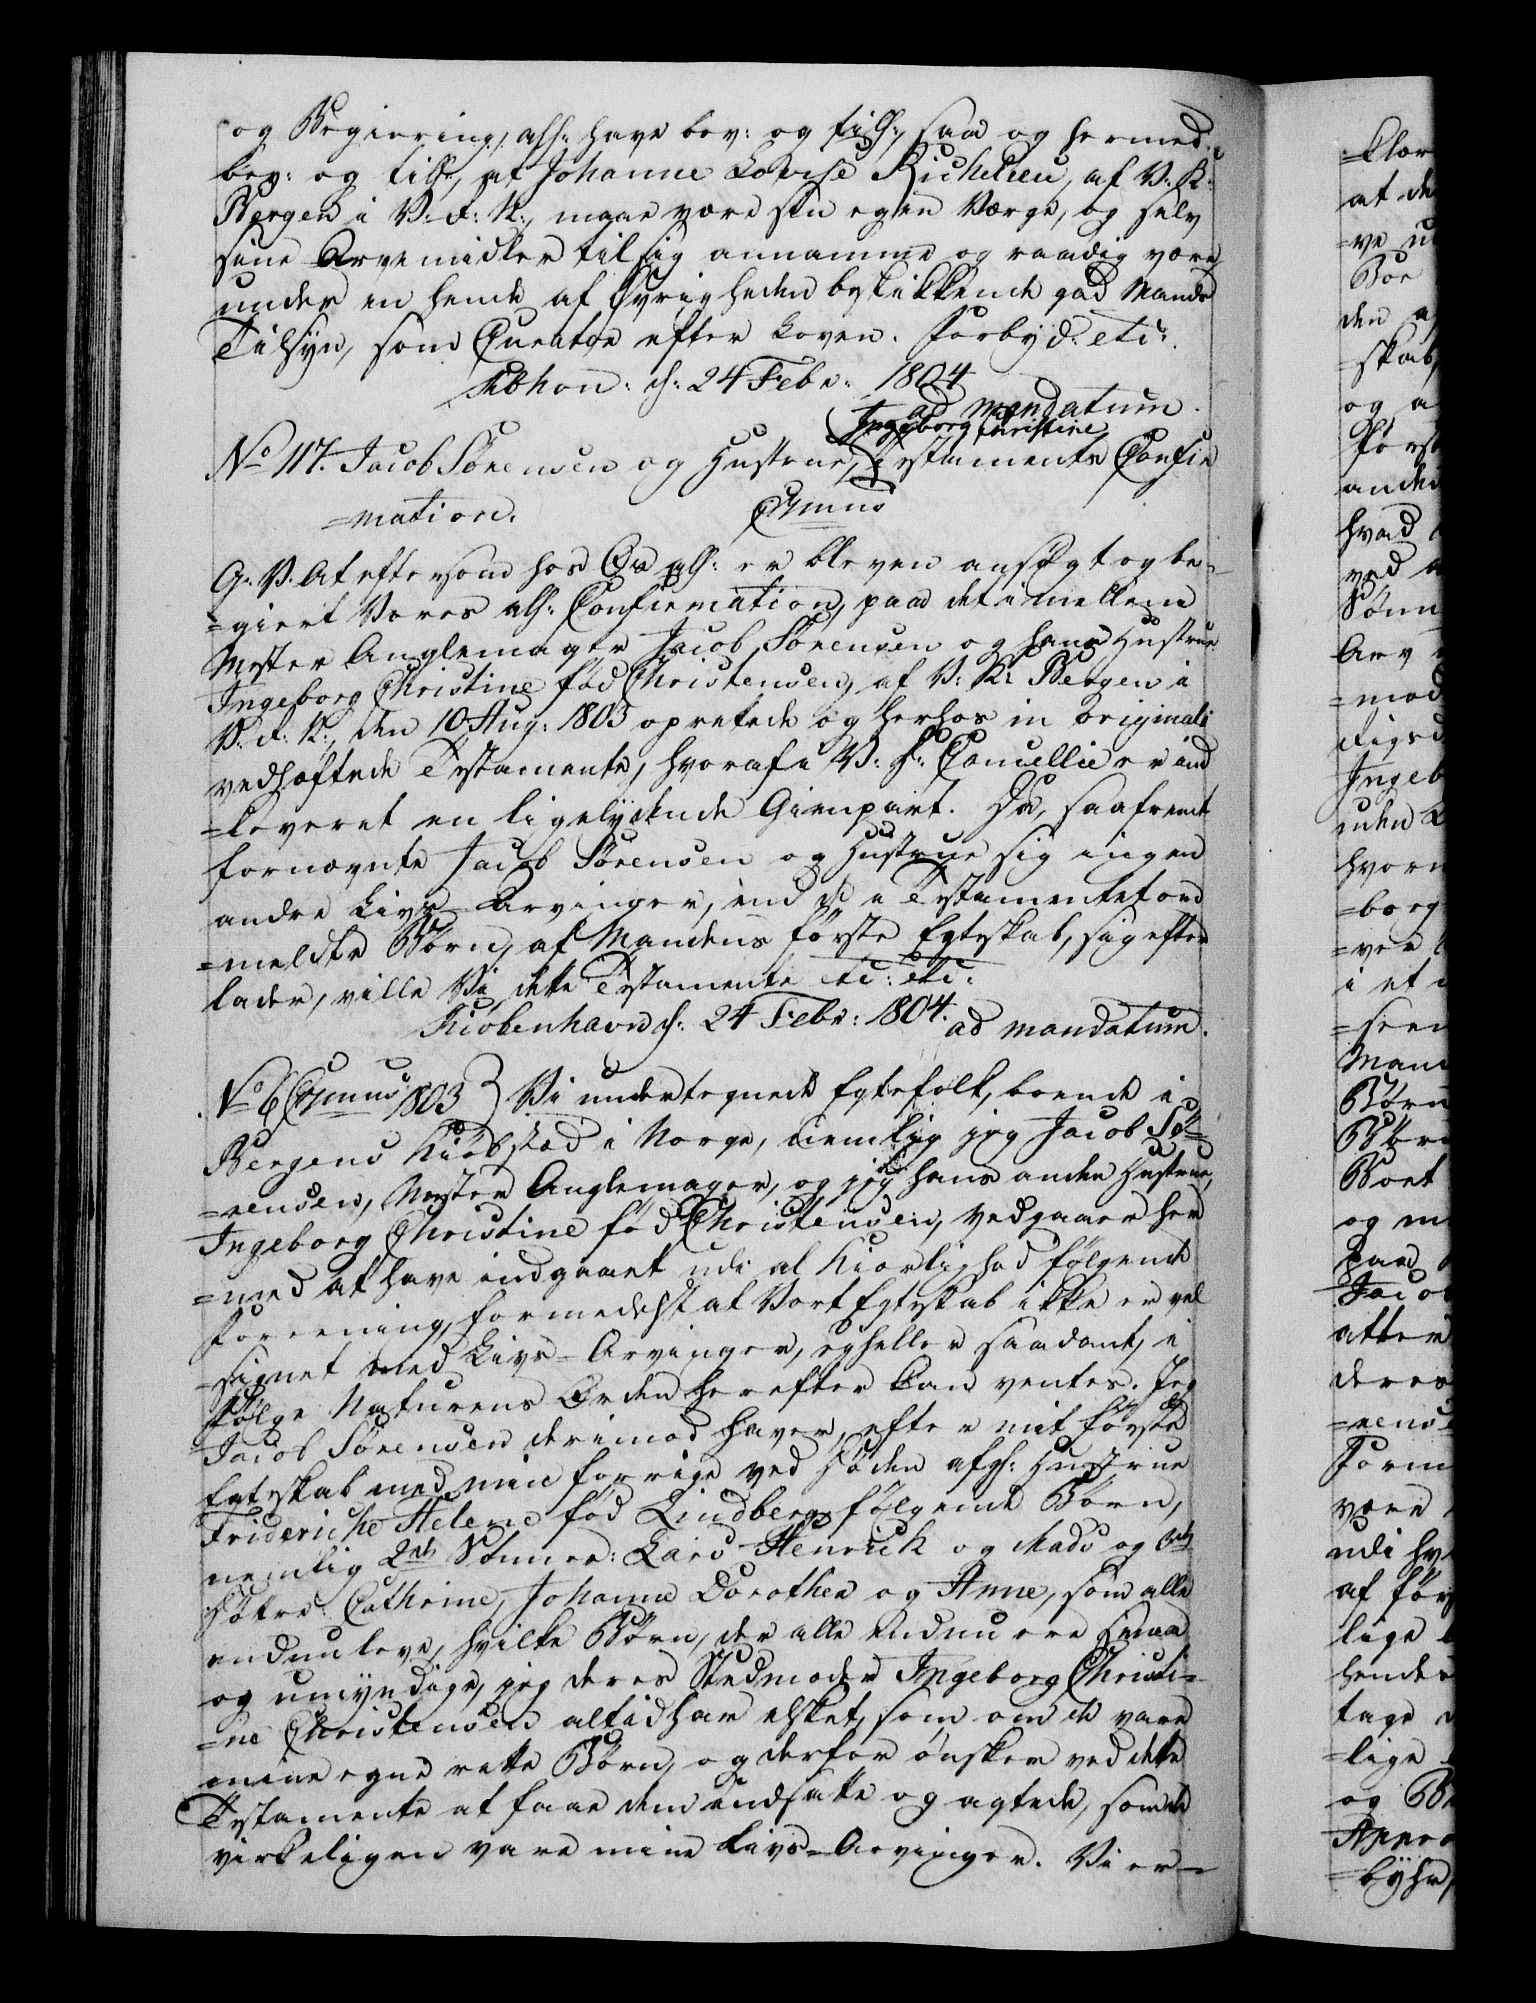 og Begiering, allh: have bev: og till:, saa og hermed
bev: og till:, at Johanne Lovise Richelieu, af V: K:
Bergen i V: R: N:, maae være sin egen Værge, og selv
sine Arvemidler til sig annamme og raadig være
under en hende af Øvrigheden beskikkende god Mands
Tilsyn, som Curator efter Loven. Forbyd: etc:
Kbhavn: d: 24 Febr: 1804
ad mandatum.
Ingeborg Christine
No 117. Jacob Sørensen og Hustrue, Testaments Confir
=mation.
G: V: At eftersom hos Os allh: er bleven ansøgt og be=
=giert Vores allh: Confirmation, paa det imellem
Mester Anglemager Jacob Sørensen og hans Hustrue
Ingeborg Christine fød Christensen, af V: K: Bergen i
V: R: N:, den 10 Aug: 1803 oprettede og herhos in originali
vedhæftede Testamente, hvoraf i V: D: Cancellie er ind
=leveret en ligelydende Gienpart. Da, saafremt
fornævnte Jacob Sørensen og Hustrue sig ingen
andre Livs-Arvinger, end de i Testamentet om
=meldte Børn, af Mandens første Egteskab, sig efter
lader, ville Vi dette Testamente etc: etc:
Kiøbenhavn d: 24 Febr: 1804. ad mandatum.
Vi undertegnede Egtefolk, boende i
Bergens Kiøbstad i Norge, nemlig jeg Jacob Sø=
=rensen, Mester Anglemager, og jeg hans anden Hustrue,
Ingeborg Christine fød Christensen, vedgaaer her
=med at have indgaaet udi al Kiærlighed følgende
Foreening, formedelst at Vort Egteskab ikke er vel
=signet med Livs-Arvinger, ey heller saadant, i
Følge Naturens Orden herefter kan ventes. Jeg
Jacob Sørensen derimod haver, efter mit første
Egteskab med min forrige ved Døden afg: Hustrue
Frideriche Helene fød Lindberg følgende Børn,
nemlig 2de Sønner: Lars Henrick og Mads og
Døtre: Cathrine, Johanna Dorothea og Anne, som alle
endnu leve, hvilke Børn, der alle endnu ere smaa
og umyndige, jeg deres Stedmoder Ingeborg Christi=
=ne Christensen altid har elsket, som om de vare
mine egne rette Børn, og derfor ønsker ved dette
Testamente at faae dem indsatte og agtede, som de
virkeligen vare mine Livs-Arvinger. Vi er=